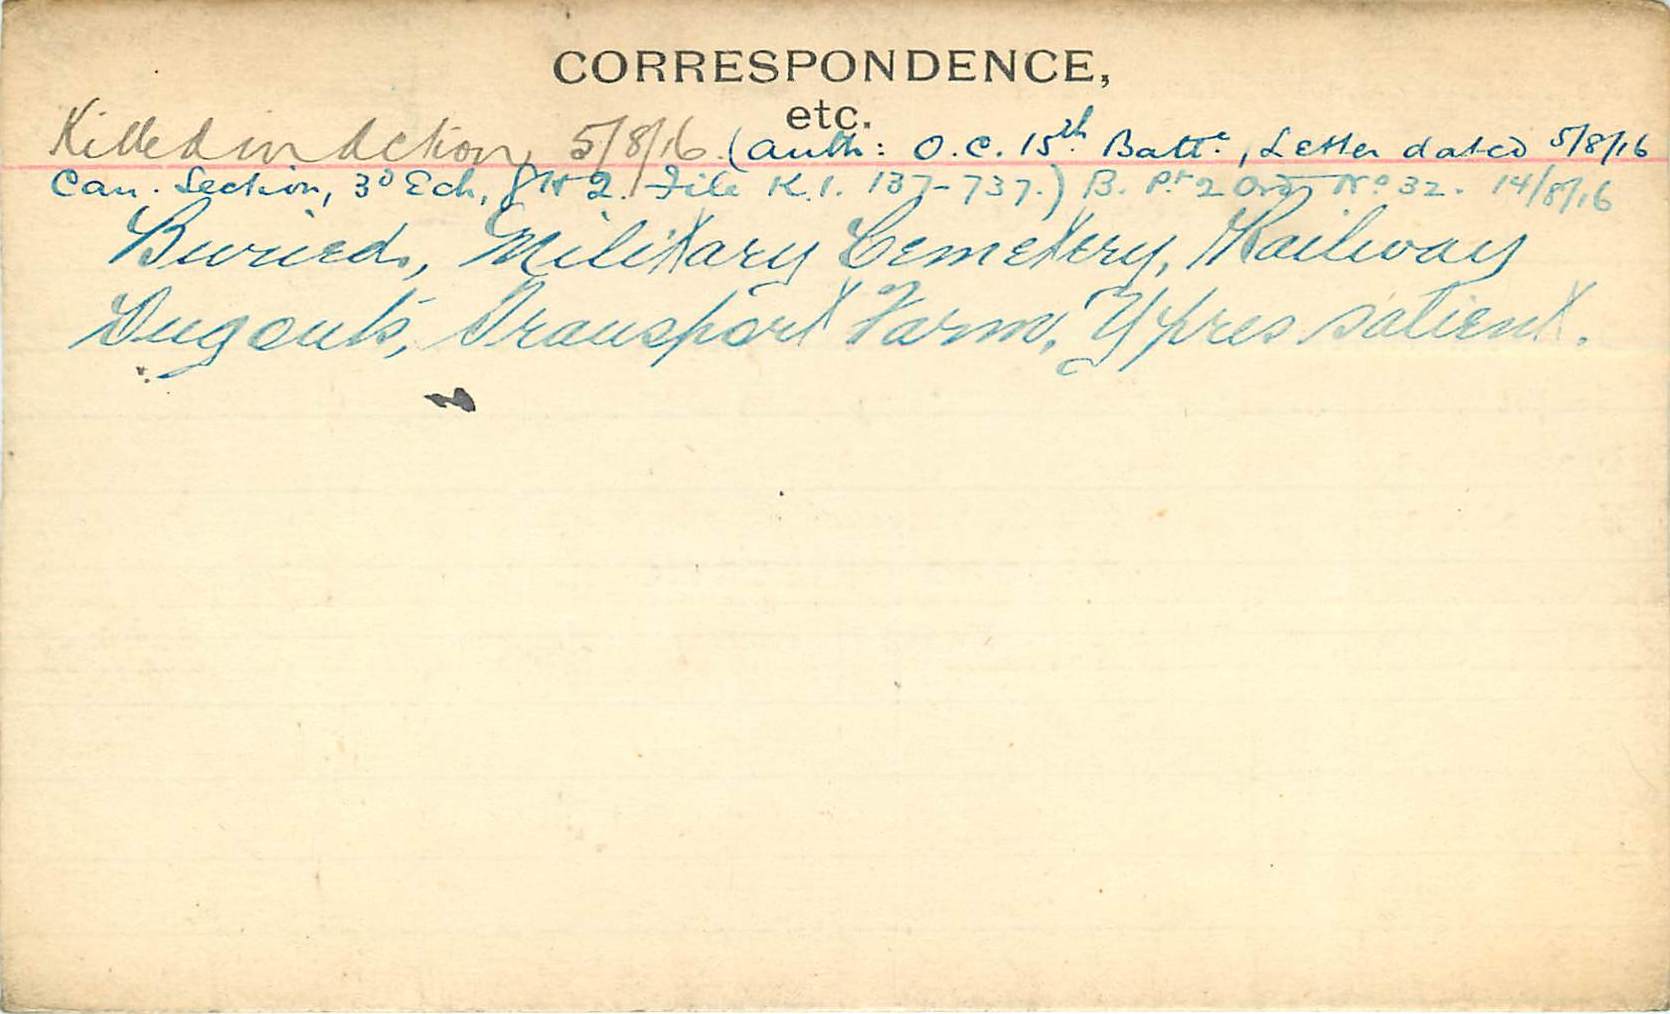 CORRESPONDENCE,
etc.
Killed in Action, 5/8/16. (Auth: O.C. 15th Battn, Letter dated 5/8/16
Can. Section, 3d Ech, GHQ. File K.1. 137-737.) B. Pt 2 Ord No 32. 14/8/16
Buried, Military Cemetery, Railway
Dugouts, Transport Farm, Ypres salient.